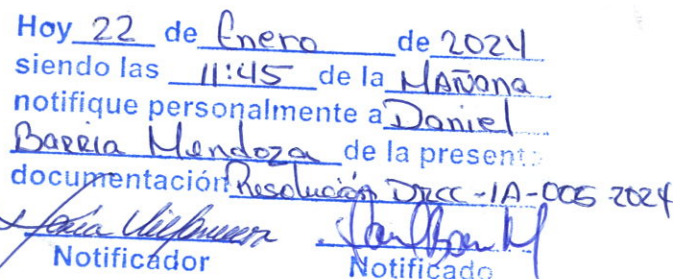 Hoy 22 de Enero de 2024
siendo las 11:45 de la MAÑana
notifique personalmente a Daniel
Barria Mendoza de la presente
documentación Resolución DRCC-IA-005 2024
Notificador Notificado